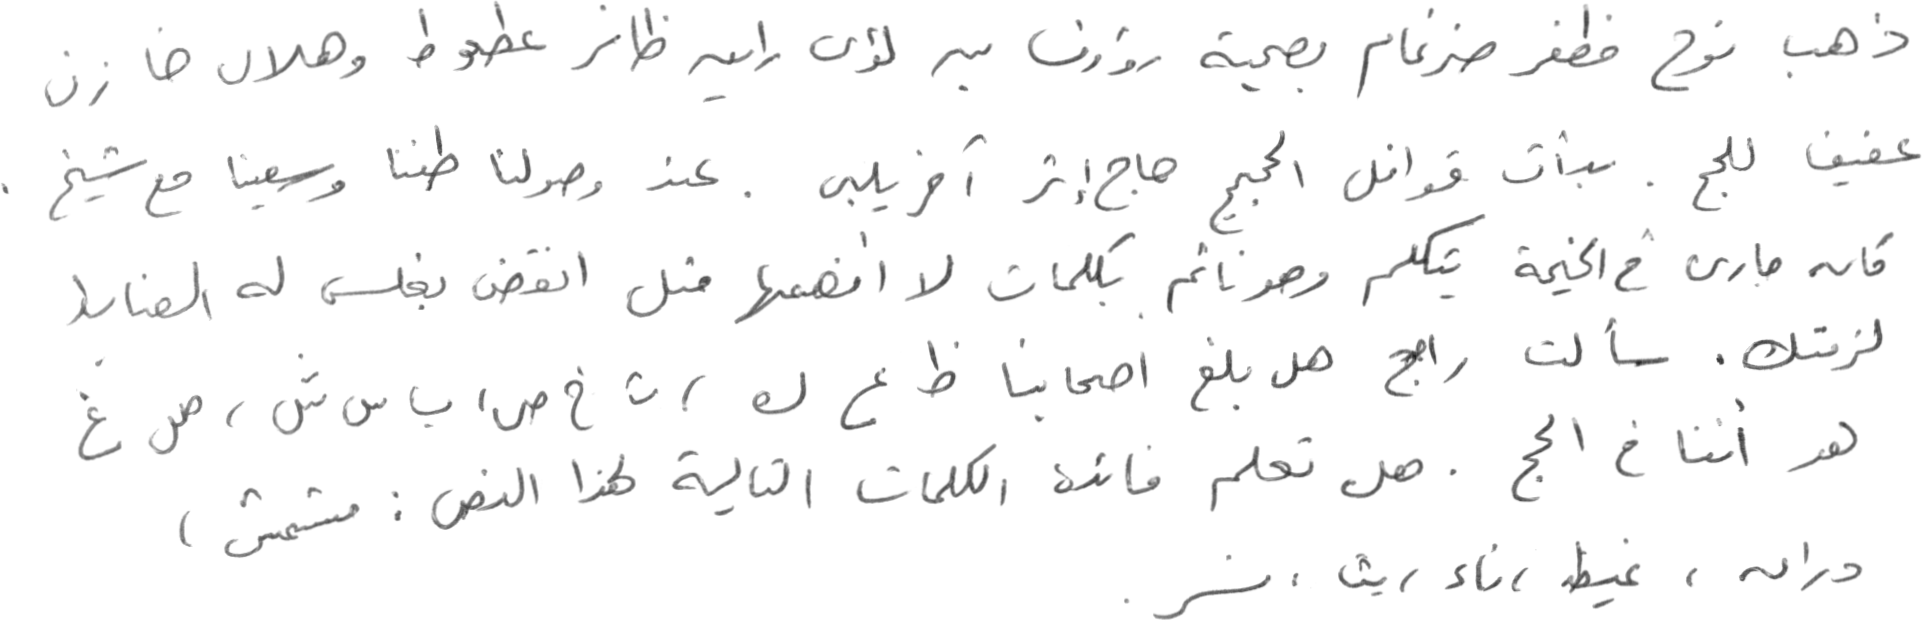 ذهب نوح مظفر ضرغام بصحبة رؤوف بن لؤى رايه ظافر عطعوط وهلال خازن
عفيف للحج . بدأت قوافل الحجيج حاج إثر آخر يلبى . عند وصولنا طفنا وسعينا مع شيخ .
كان جارى فى الخيمة يتكلم وهو نائم بكلمات لا أفهمها مثل انقض بغلس له الضابط
لزمتك . سألت راجح هل بلغ أصحابنا ظ ع ك ، ث خ ص ، ب س ش ، ض غ
هو أننا فى الحج . هل تعلم فائدة الكلمات التالية لهذا النص : مشمش ،
دران ، غيظ ، ناء ، يث ، نسر .